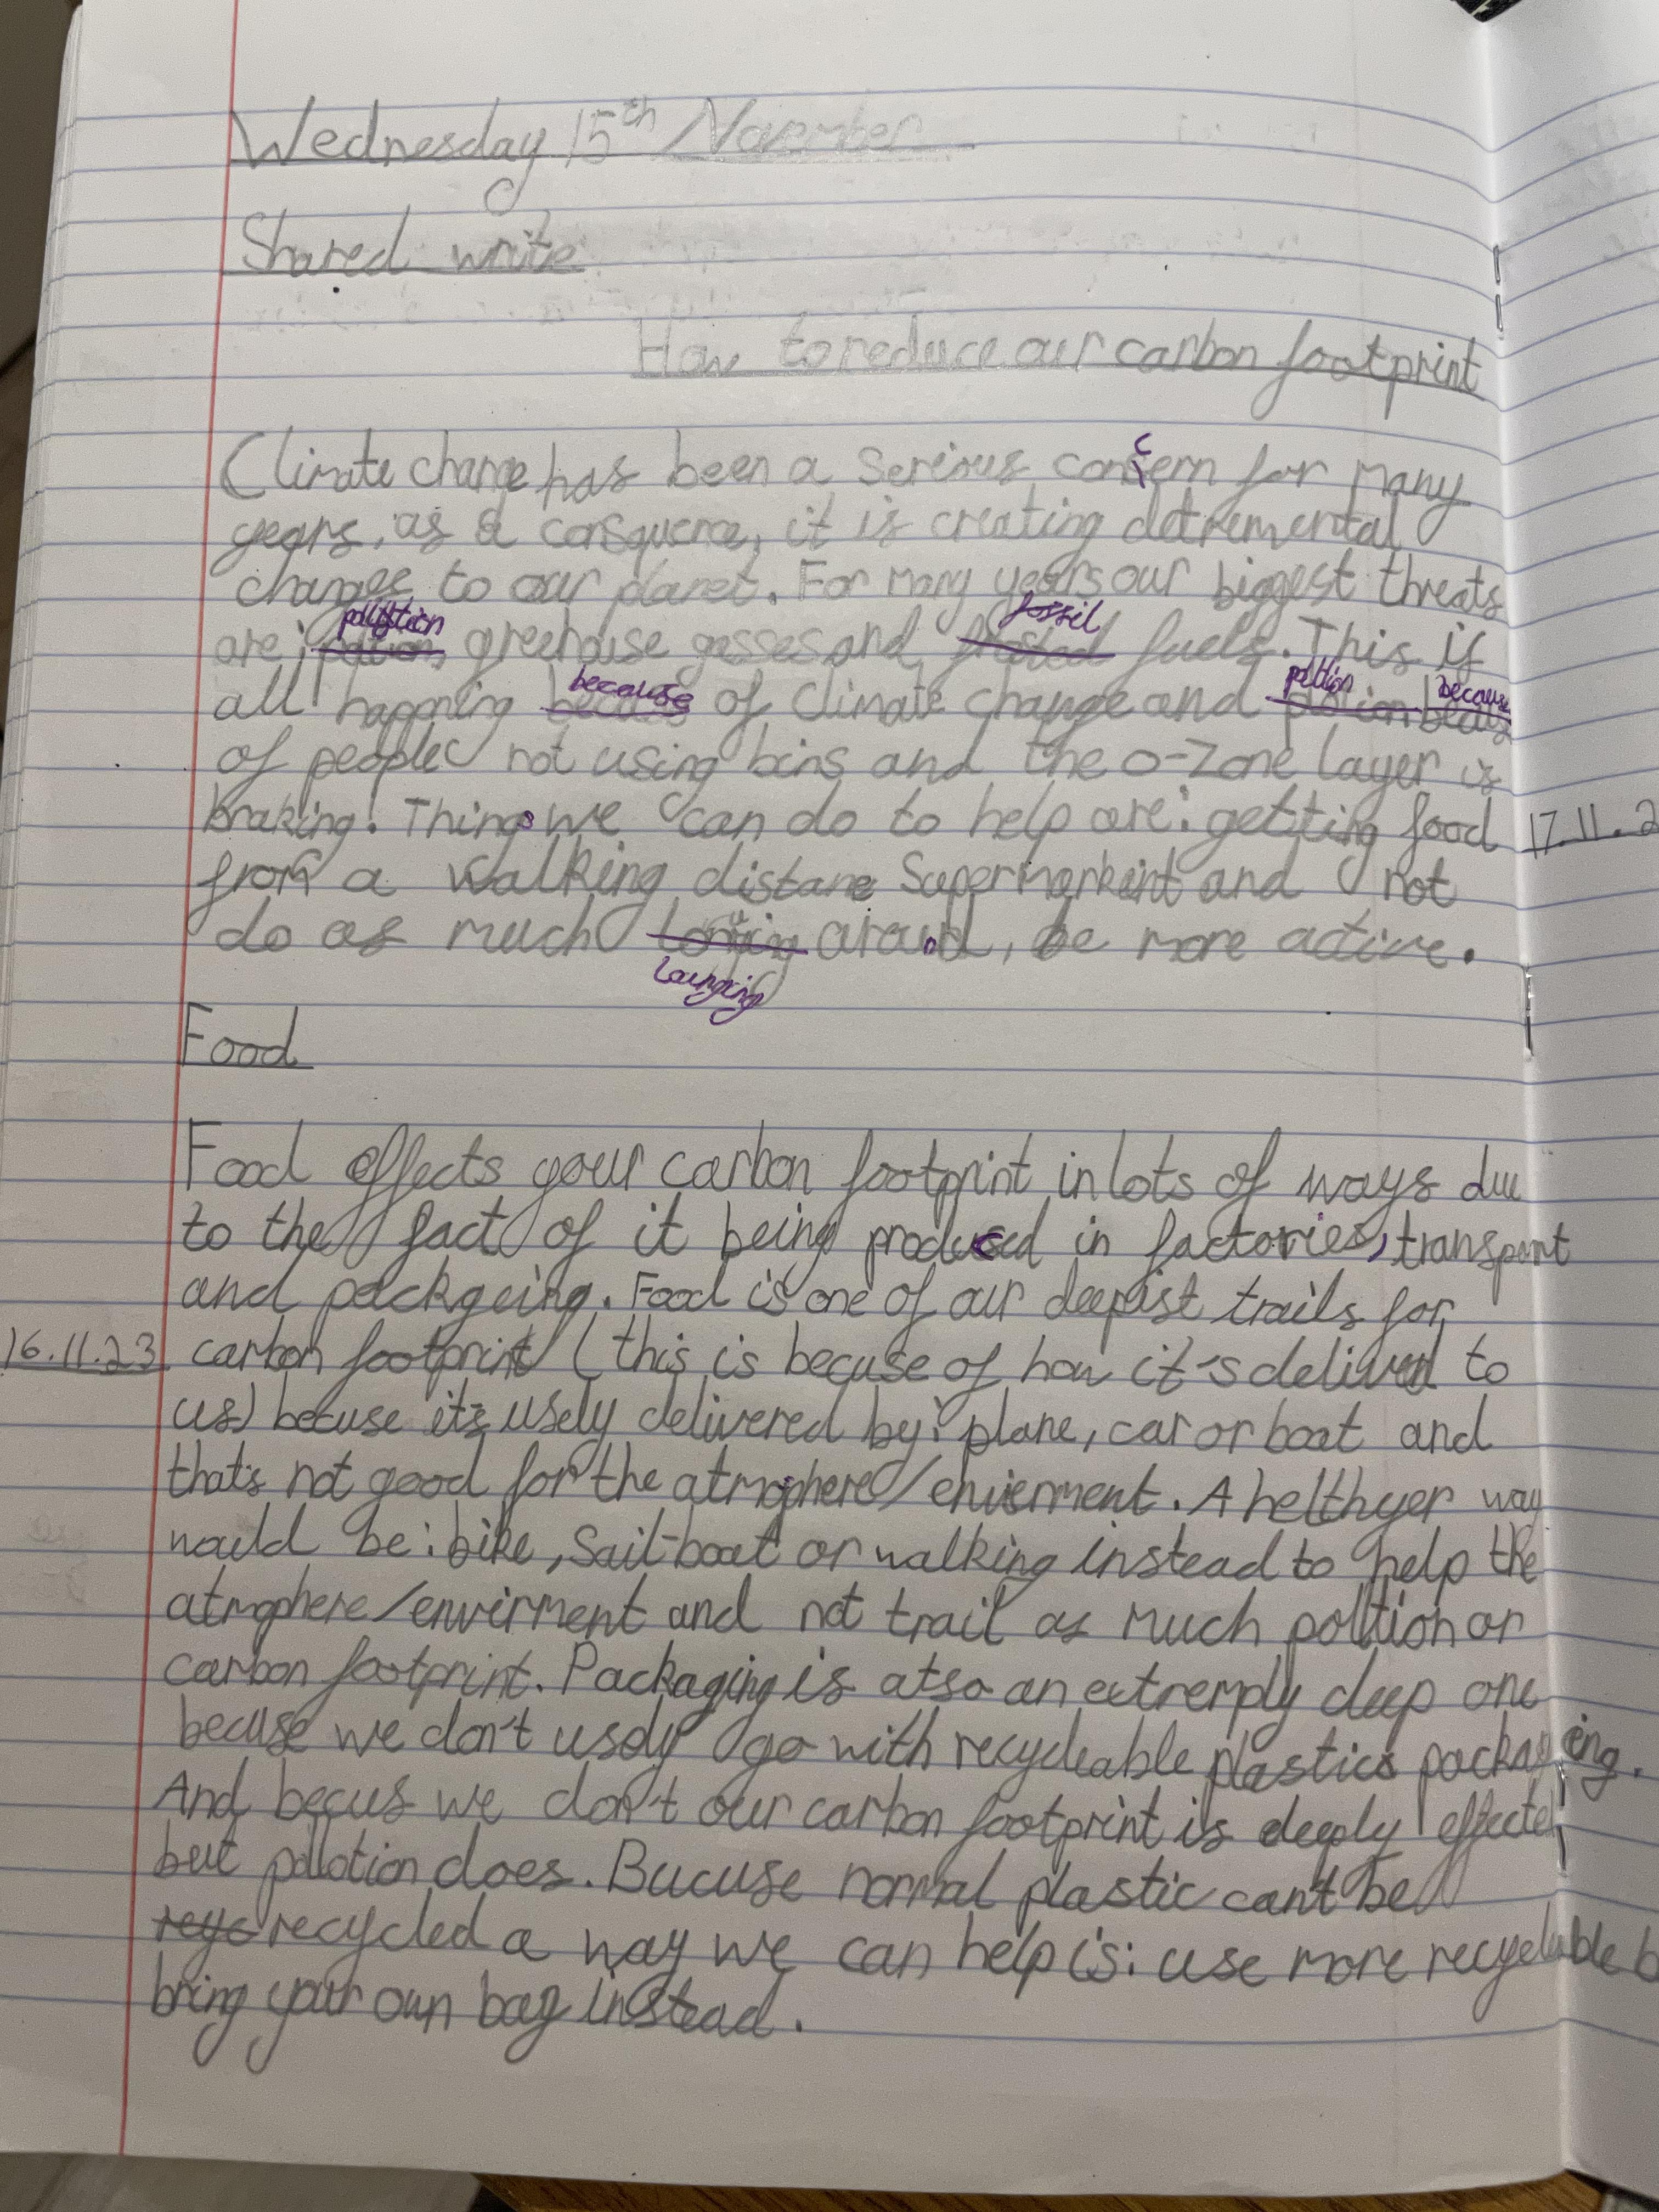 Wednesday 15th November
Shared write
How to reduce our carbon footprint
Climate change has been a Serious concern for many
years, as a consquence, it is creating detremental
changes to our planet. For many years our biggest threats
pollution fossil
are; greehouse gasses and, frosted fuels. This is
because poltion because
all happning becaus of Climate change and potion becaus
of people not using bins and the o-Zone layer is
braking. Things we can do to help are: getting food
17.11.2
from a walking distane Supermarkeint and not
do as much around, be more active.
lounging
Food
Food effects your carbon footprint in lots of ways due
to the fact of it being produced in factories, transport
and packgeing. Food is one of our deepist trails for
16.11.23 carbon footprint (this is becuse of how it's deliverd to
us) becuse it's usely delivered by: plane, car or boat and
that's not good for the atmosphere/enviorment. A helthyer way
would be: bike, Sail-boat or walking instead to help the
atmophere/envirment and not trail as much poltion or
carbon footprint. Packaging is also an extremply deep one
becuse we don't usely go with recycleable plastics packageing.
And becus we don't our carbon footprint is deeply effected
but pollotion does. Bucuse normal plastic can't be
reyc recycled a way we can help is: use more recycleable b
bring your own bag instead.